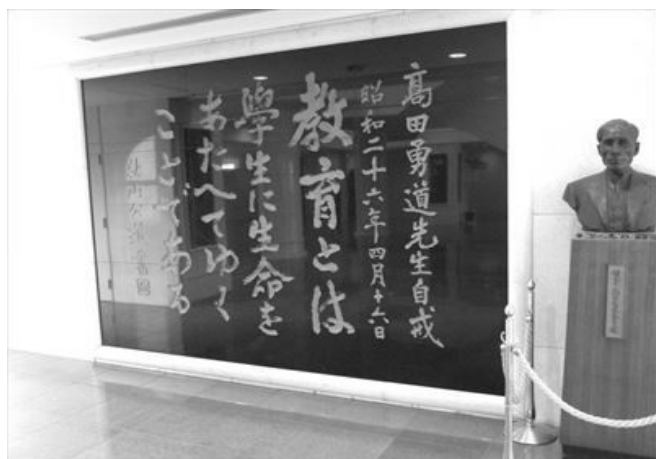 高田勇道先生自戒
昭和二十六年四月十六日
教育とは
學生に生命を
あたへてゆく
ことである